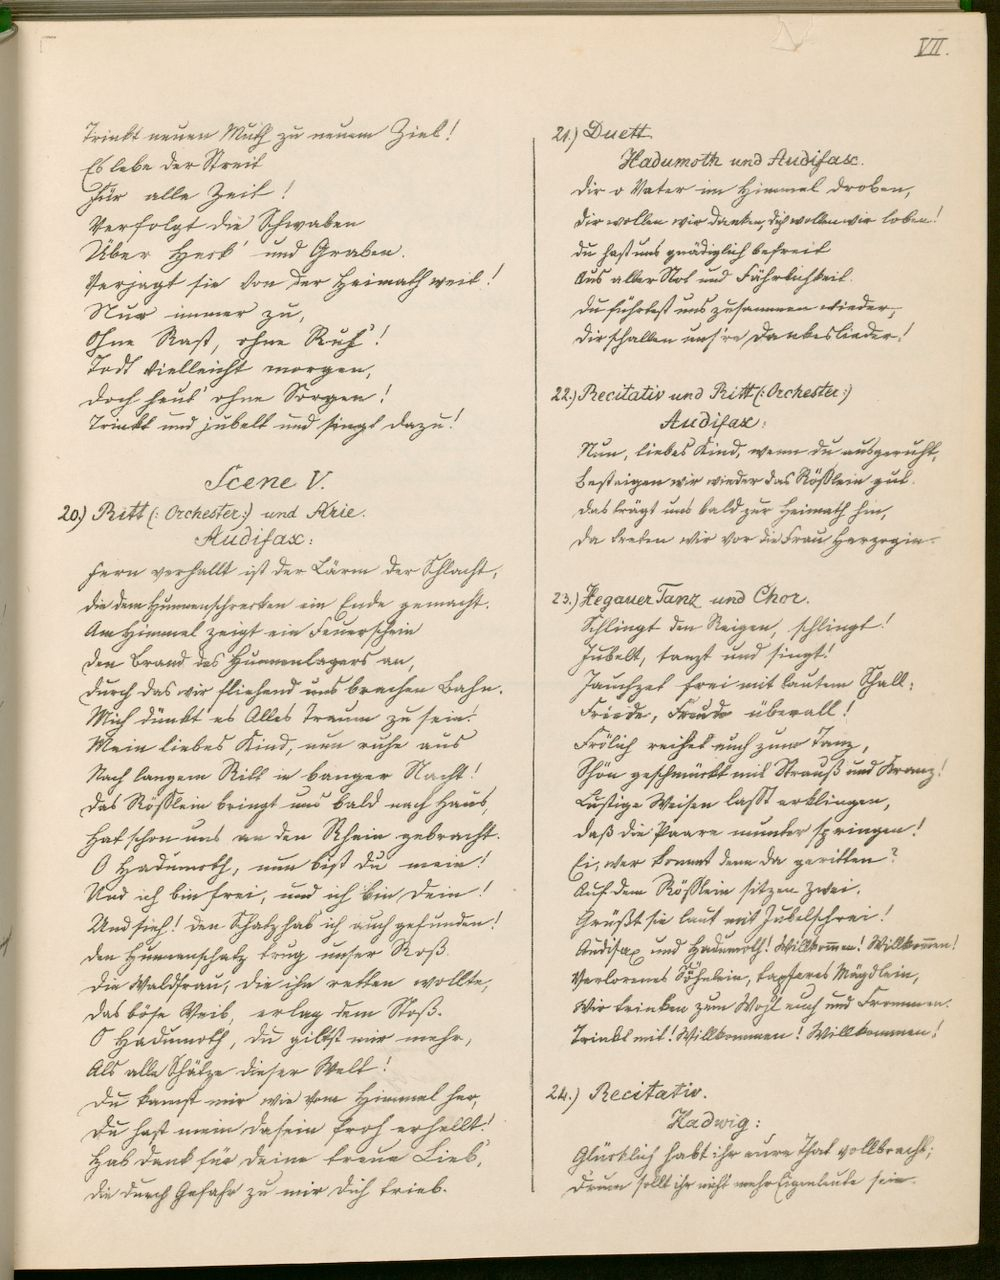 VII.
Trinkt neuen Muth zu neuem Ziel!
Es lebe der Streit
Für alle Zeit!
Verfolgt die Schwaben
Über Heck' und Graben.
Verjagt sie von der Heimath weit!
Nur immer zu,
Ohne Rast, ohne Ruh'!
Todt vielleicht morgen,
Doch heut' ohne Sorgen!
Trinkt und jubelt und singt dazu!
Scene V.
20.) Ritt (: Orchester:) und Arie.
Audifax:
Fern verhallt ist der Lärm der Schlacht,
Die dem Hunnenschrecken ein Ende gemacht.
Am Himmel zeigt ein Feuerschein
Den Brand des Hunnenlagers an,
Durch das wir fliehend uns brachen Bahn.
Mich dünkt es Alles Traum zu sein!
Mein liebes Kind, nun ruhe aus
Nach langem Ritt in banger Nacht!
Das Rößlein bringt uns bald nach Haus,
Hat schon uns an den Rhein gebracht.
O Hadumoth, nun bist Du mein!
Und ich bin frei, und ich bin Dein!
Und sieh! den Schatz hab ich auch gefunden!
Den Hunnenschatz trug unser Roß.
Die Waldfrau, die ihn retten wollte,
Das böse Weib, erlag dem Stoß.
O Hadumoth, Du giltst mir mehr,
Als alle Schätze dieser Welt!
Du kamst mir wie vom Himmel her,
Du hast mein Dasein froh erhellt!
Hab Dank für Deine treue Lieb',
Die durch Gefahr zu mir Dich trieb.
21.) Duett.
Hadumoth und Audifax.
Dir o Vater im Himmel droben,
Dir wollen wir danken, Dich wollen wir loben!
Du hast uns gnädiglich befreit
Aus aller Not und Fährlichkeit.
Du führtest uns zusammen wieder,
Dir schallen uns're Dankeslieder!
22.) Recitativ und Ritt (: Orchester:)
Audifax:
Nun, liebes Kind, wenn du ausgeruht,
Besteigen wir wieder das Rößlein gut.
Das trägt uns bald zur Heimath hin,
Da treten wir vor die Frau Herzogin.
23.) Hegauer Tanz und Chor.
Schlingt den Reigen, schlingt!
Jubelt, tanzt und singt!
Jauchzet frei mit lautem Schall:
Friede, Freude überall!
Frölich reihet euch zum Tanz,
Schön geschmückt mit Strauß und Kranz!
Lustige Weisen lasst erklingen,
Daß die Paare munter springen!
Ei, wer kommt denn da geritten?
Auf dem Rößlein sitzen zwei.
Grüßt sie laut mit Jubelschrei!
Audifax und Hadumoth! Willkommen! Willkommen!
Verlorenes Söhnlein, tapferes Mägdlein,
Wir trinken zum Wohl euch und Frommen.
Trinkt mit! Willkommen! Willkommen!
24.) Recitativ.
Hadwig:
Glücklich habt ihr eure That vollbracht;
Drum sollt ihr nicht mehr Eigenleute sein.